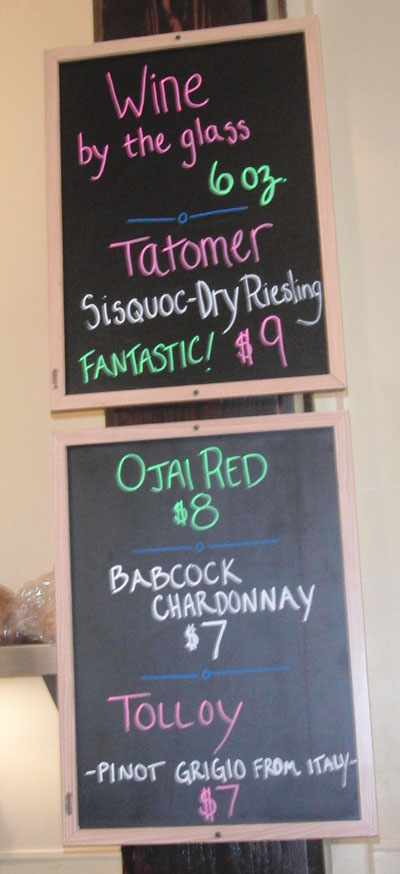 Wine
by the glass
6 oz.
Tatomer
Sisquoc-Dry Riesling
FANTASTIC! $9
OJAI RED
$8
BABCOCK
CHARDONNAY
$7
TOLLOY
-PINOT GRIGIO FROM ITALY-
$7